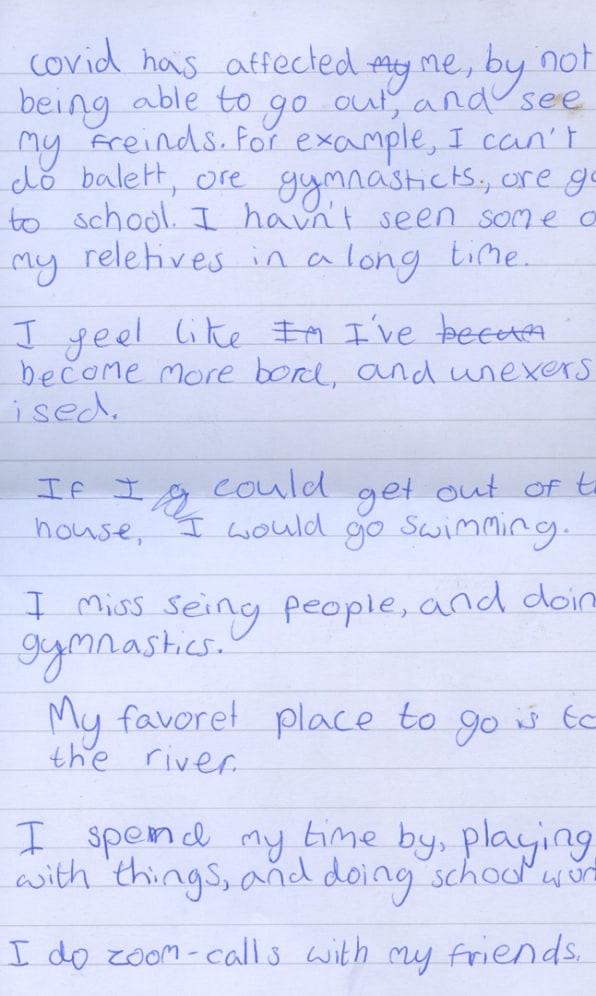 covid has affected my me, by not
being able to go out, and see
my freinds. For example, I can't
do balett, ore gymnasticts., ore go
to school. I havn't seen some o
my reletives in a long time.
I feel like Im I've becum
become more bord, and unexers
ised.
If I g could get out of t
house, I would go swimming.
I miss seing people, and doin
gymnastics.
My favoret place to go is to
the river.
I spend my time by, playing
with things, and doing school wor
I do zoom-calls with my friends.